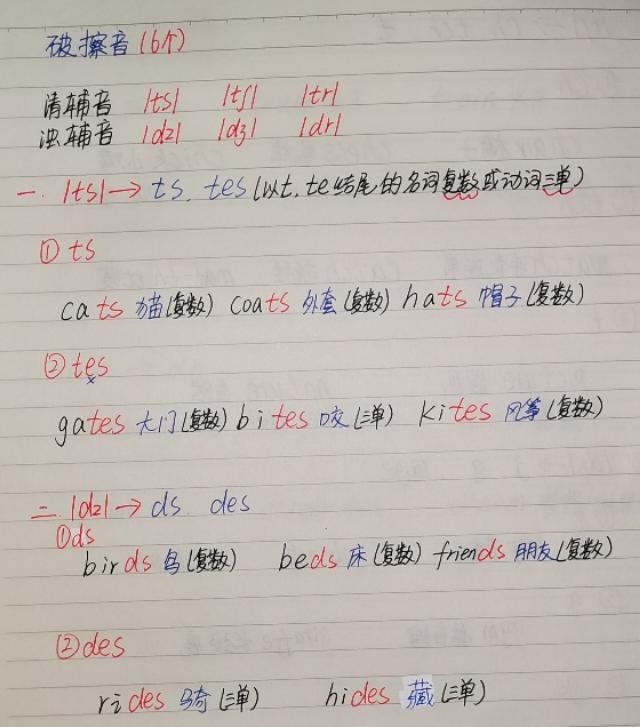 破擦音(6个)
清辅音 /ts/ /tʃ/ /tr/
浊辅音 /dz/ /dʒ/ /dr/
一. /ts/→ ts. tes (以t, te结尾的名词复数或动词三单)
① ts
cats 猫(复数) coats 外套(复数) hats 帽子(复数)
② tes
gates 大门(复数) bites 咬(三单) kites 风筝(复数)
二. /dz/→ ds des
①ds
birds 鸟(复数) beds 床(复数) friends 朋友(复数)
②des
rides 骑(三单) hides 藏(三单)